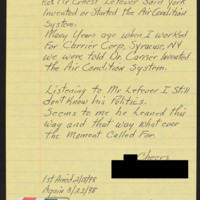 Rev Mr Ernest Lefever Said York
Invented or Started the Air Condition
System.
Many Years ago when I worked
For Carrier Corp, Syracuse, NY
we were told Dr. Carrier Invented
the Air Condition System.
Listening to Mr Lefever I Still
don't Know his Politics.
Seems to me he leaned this
way and that way what ever
the Moment Called For.
Cheers
1st Aired 2/11/88
Again 8/23/88